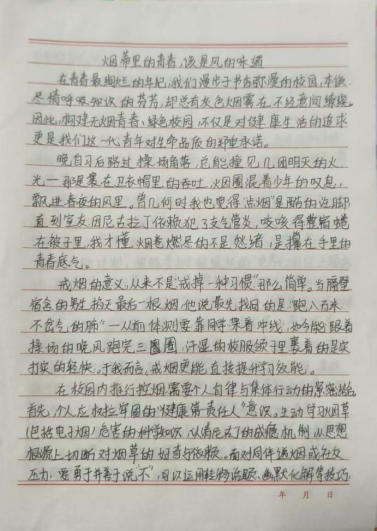 烟蒂里的青春,该是风的味道
在青春最绚烂的年纪,我们漫步于书香弥漫的校园,本应
尽情呼吸知识的芬芳,却总有灰色烟雾在不经意间缭绕。
因此,构建无烟青春、绿色校园,不仅是对健康生活的追求
更是我们这一代青年对生命品质的郑重承诺。
晚自习后路过操场角落,总能撞见几团明灭的火
光一那是裹在卫衣帽里的吞吐,烟圈混着少年的叹息,
飘进青春的风里。曾几何时我也觉得"点烟"是酷的注脚
直到室友因尼古拉丁依赖犯了支气管炎,咳嗽得整宿蜷
在被子里,我才懂,烟卷燃尽的不是愁绪,是攥在手里的
青春底气。
戒烟的意义,从来不是"戒掉一种习惯"那么简单。当隔壁
宿舍的男生掐灭最后一根烟,他说最先找回的是"跑八百米
不岔气的肺"一从前体测要靠同学架着冲线,如今能跟着
操场的晚风跑完三圈圈,汗湿的校服领子里裹着的是实
打实的轻快,于我而言,戒烟更能直接提升学习效能。
在校园内推行控烟需要个人自律与集体行动的紧密结合
首先,个人应树立牢固的"健康第一责任人"意识,主动学习烟草
(包括电子烟)危害的科学知识,认清尼古丁的成瘾机制,从思想
根源上切断对烟草的好奇与依赖。面对同伴递烟或社交
压力,要勇于并善于说"不",可以运用转移话题、幽默化解等技巧,
年 月 日